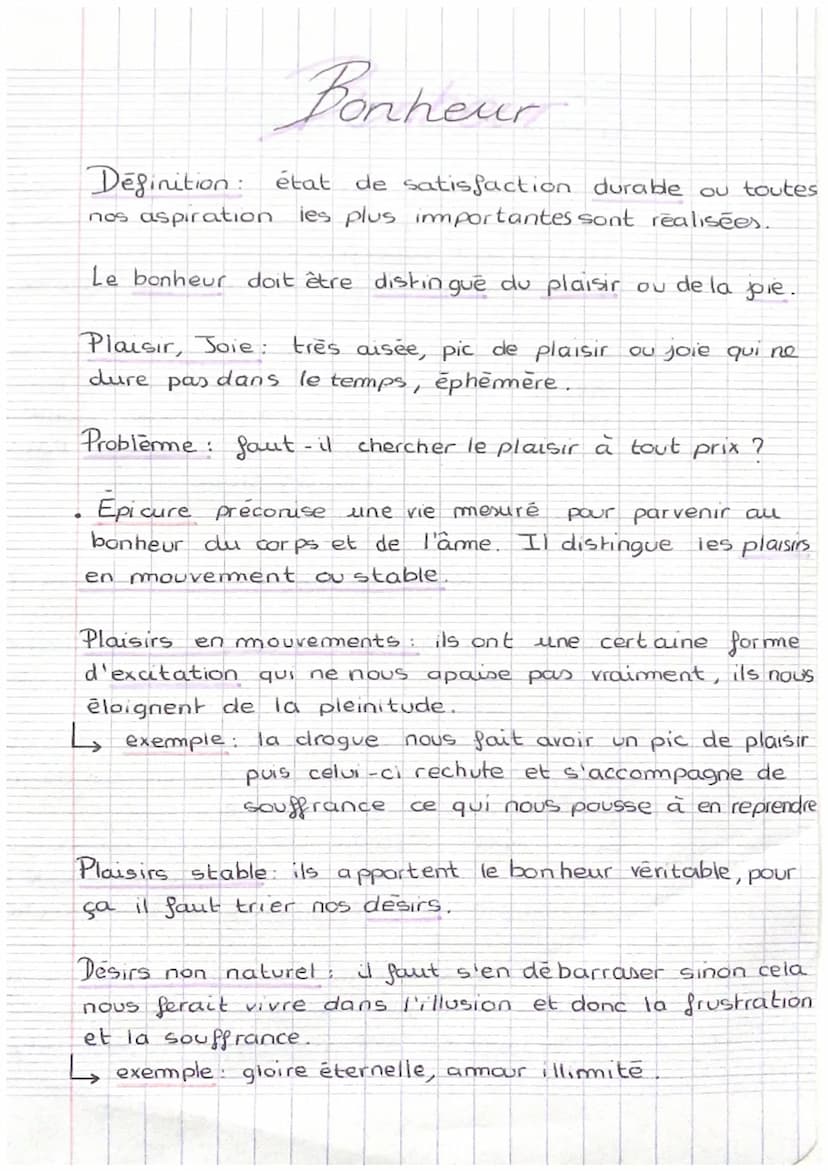 Bonheur
Définition : état de satisfaction durable ou toutes
nos aspiration les plus importantes sont réalisées.
Le bonheur doit être distingué du plaisir ou de la joie.
Plaisir, Joie : très aisée, pic de plaisir ou joie qui ne
dure pas dans le temps, éphémère.
Problème : faut-il chercher le plaisir à tout prix ?
. Épicure préconise une vie mesuré pour parvenir au
bonheur du corps et de l'âme. Il distingue les plaisirs
en mouvement ou stable.
Plaisirs en mouvements : ils ont une certaine forme
d'excitation qui ne nous apaise pas vraiment, ils nous
éloignent de la pleinitude.
↳ exemple : la drogue nous fait avoir un pic de plaisir
puis celui-ci rechute et s'accompagne de
souffrance ce qui nous pousse à en reprendre
Plaisirs stable : ils apportent le bonheur véritable, pour
ça il faut trier nos désirs.
Désirs non naturel : il faut s'en débarraser sinon cela
nous ferait vivre dans l'illusion et donc la frustration
et la souffrance.
↳ exemple : gloire éternelle, amour illimité.